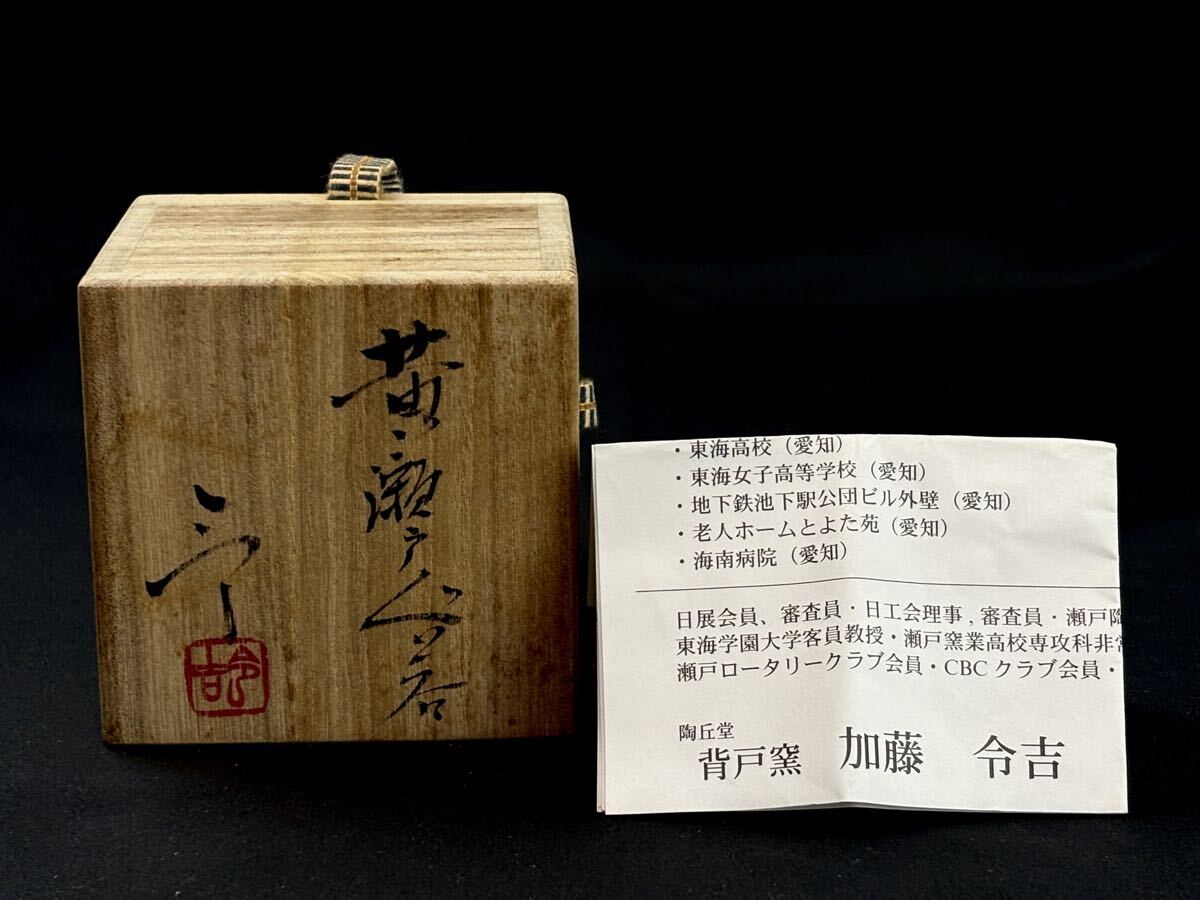 黄瀬戸ぐい呑
・東海高校（愛知）
・東海女子高等学校（愛知）
・地下鉄池下駅公団ビル外壁（愛知）
・老人ホームとよた苑（愛知）
・海南病院（愛知）
日展会員、審査員・日工会理事,審査員・瀬戸陶
東海学園大学客員教授・瀬戸窯業高校専攻科非常
瀬戸ロータリークラブ会員・CBCクラブ会員・
陶丘堂
背戸窯 加藤 令吉